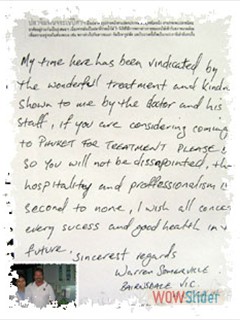 My time here has been vindicated by
the wonderfull treatment and kindn
shown to me by the doctor and his
staff, if you are considering coming
to PHUKET FOR TREATMENT PLEASE!
so you will not be dissapointed, th
hospitality and proffessionalism is
second to none, I wish all conce
every sucess and good health in
future.
sincerest regards
Warren
BAIRNSDALE VIC.
WOWSlider